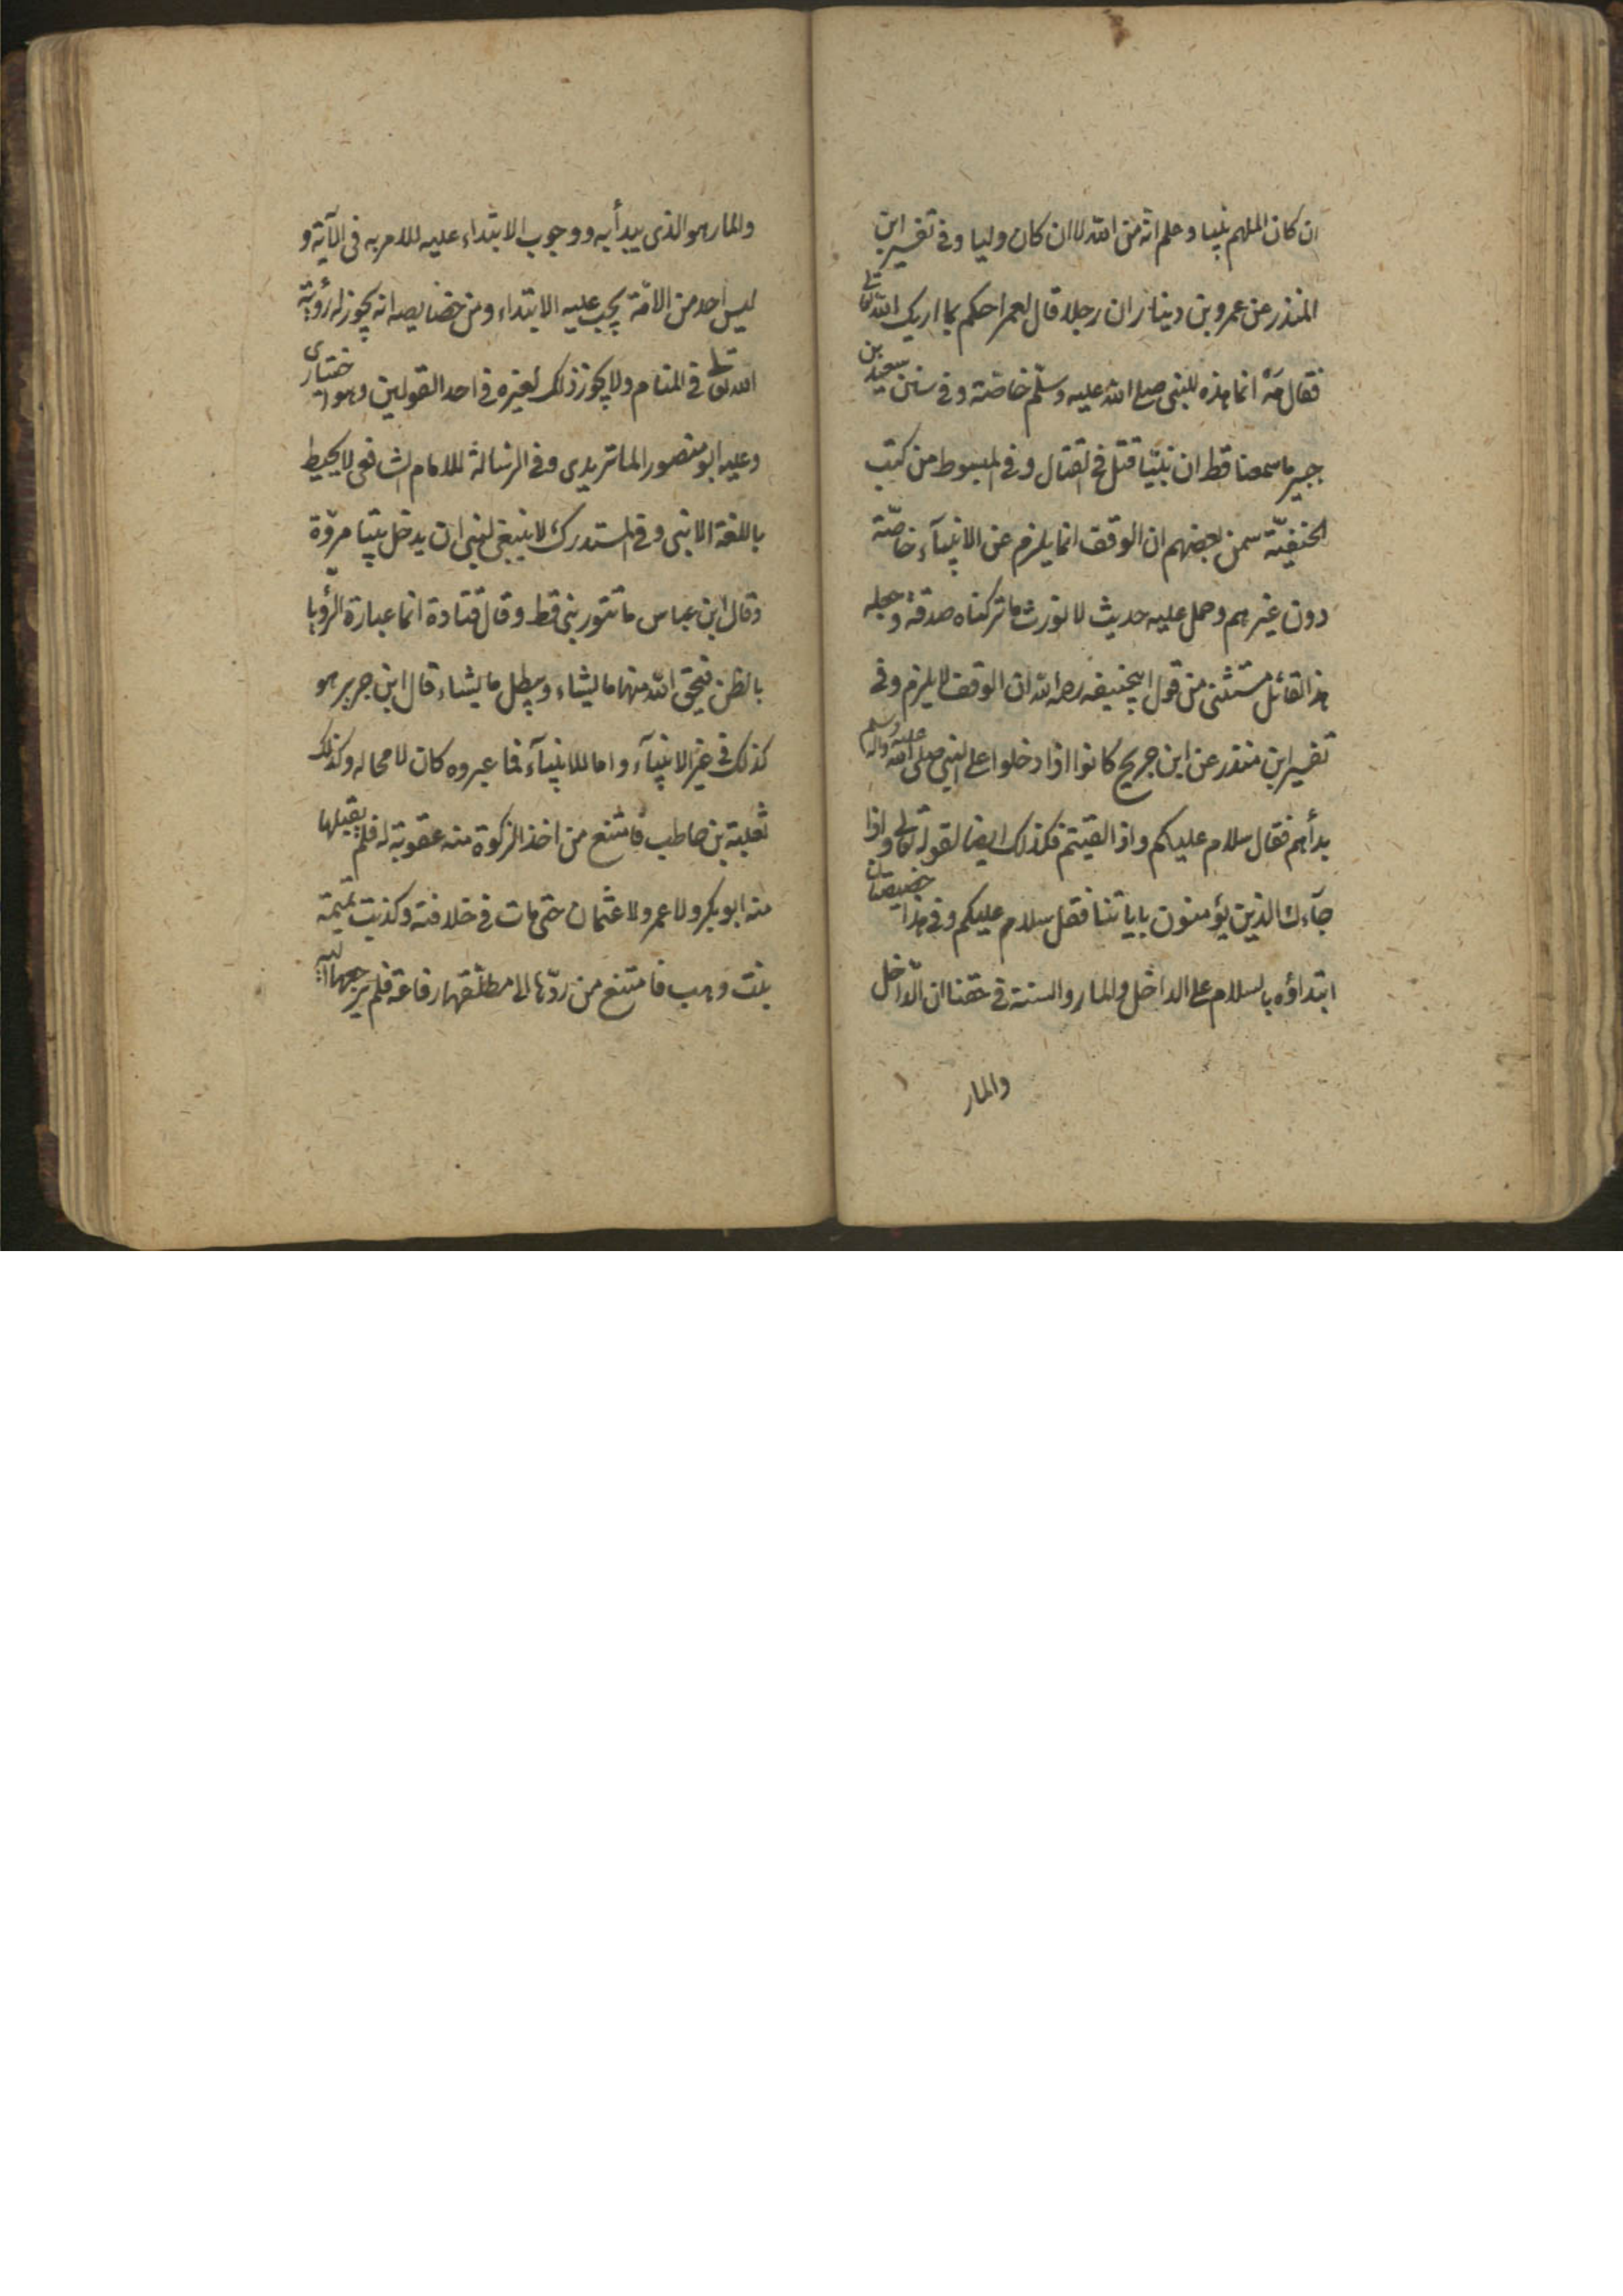 ان كان الملهم نبيا وعلم انه من الله لا ان كان وليا وفي تفسير ابن
المنذر عن عمرو بن دينار ان رجلا قال لعمر احكم بما اريك الله تعالى
فقال مه انما هذه للنبي صلى الله عليه وسلم خاصة وفي سنن سعيد بن
جبير ما سمعنا قط ان نبيا قتل في القتال وفي المبسوط من كتب
الحنفية عن بعضهم ان الوقف انما يلزم عن الانبيآء خاصّة
دون غيرهم وحمل عليه حديث لا نورث ما تركناه صدقة وجعله
هذا القائل مستثنى من قول ابيحنيفه رحمه الله ان الوقف لا يلزم وفي
تفسير ابن منذر عن ابن جريج كانوا اذا دخلوا على النبي صلى الله عليه واله وسلم
بدأهم فقال سلام عليكم واذا لقيتم فكذلك ايضا لقوله تعالى واذا
جآءك الذين يؤمنون باياتنا فقل سلام عليكم وفي هذا خصيصتان
ابتداؤه بالسلام على الداخل والمار والسنة في حقنا ان الداخل
والمار
والمار هو الذي يبدأ به ووجوب الابتداء عليه للامر به في الآية و
ليس احد من الامّة يجب عليه الابتداء ومن خصايصه انه يجوز له رؤية
الله تعالى في المنام ولا يجوز ذلك لغيره في احد القولين وهو اختيارى
وعليه ابو منصور الماتريدى وفي الرسالة للامام الشافعي لا يحيط
باللغة الا نبي وفي المستدرك لا ينبغي لنبي ان يدخل بيتا مزوّقا
وقال ابن عباس ما تنور نبي قط وقال قتادة انما عبارة الرؤيا
بالظن فيحق الله منها ما يشاء ويبطل ما يشاء قال ابن جرير هو
كذلك في غير الانبيآء واما للانبيآء فما عبروه كان لا محاله وكذلك
ثعلبة بن حاطب فامتنع من اخذ الزكوة منه عقوبة له فلم يقبلها
منه ابو بكر ولا عمر ولا عثمان حتى مات في خلافته وكذبت تميمة
بنت وهب فامتنع من ردّها الى مطلقها رفاعة فلم يرجعها اليه